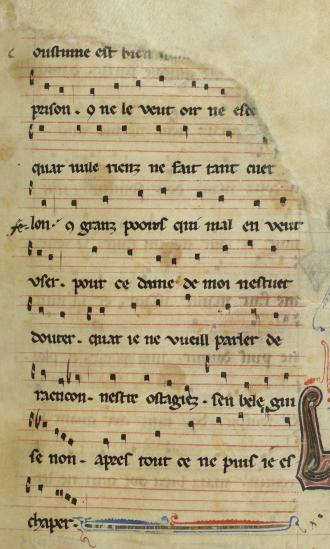 oustume est bien
prison. q ne le veut oir ne esco
quar nule rienz ne fait tant cuer
felon. q granz pooirs qui mal en veut
vser. pour ce dame de moi nestuet
douter. quar ie ne vueill parler de
raencon. nestre ostagiez. sen bele gui
se non. apres tout ce ne puis ie es
chaper.